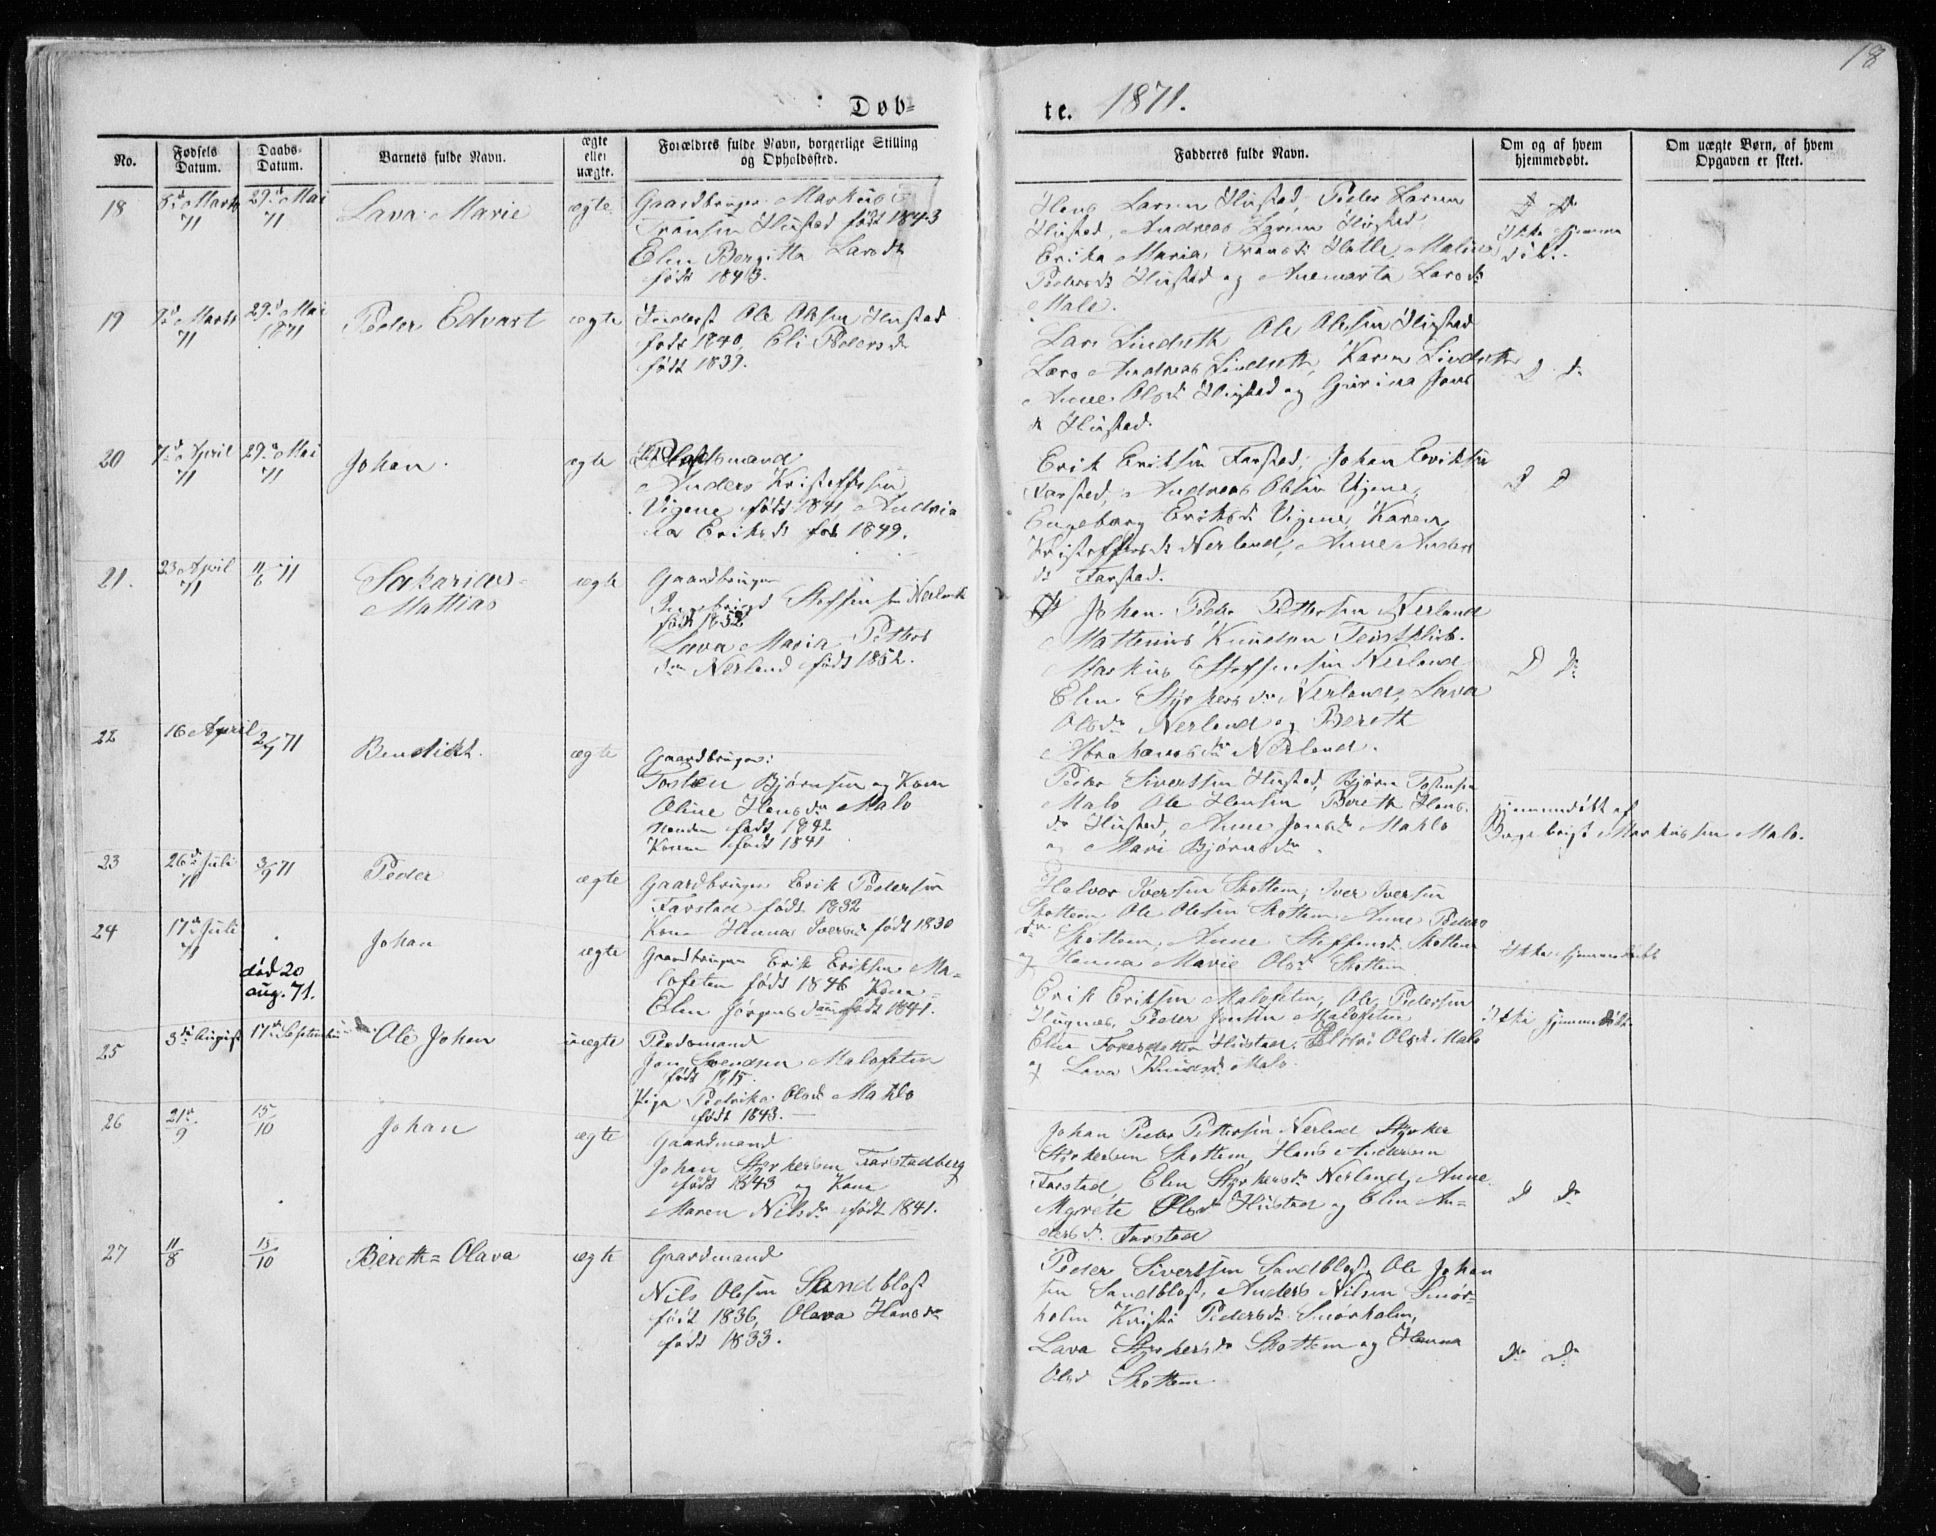 18
Døb=
te. 1871.
No.
Fødsels Datum.
Daabs- Datum.
Barnets fulde Navn.
ægte eller uægte.
Forældres fulde Navn, borgerlige Stilling og Opholdssted.
Fadderes fulde Navn.
Om og af hvem hjemmedøbt.
Om uægte Børn, af hvem Opgaven er skeet.
18
Marts 71
29d Mai 71
Lava Marie
ægte
Gaardbruger Markus
Fransen Hustad født 1843
Elen Bergitta Larsdr
født 1843.
Hans Larsen Hustad, Peder Larsen
Hustad, Andreas Larsen Hustad
Erika Maria Fransdr Hatle, Malina
Pedersdr Hustad og Anemarta Larsdr
Male.
Ikke hjemme
døbt.
19
Marts 71
29d Mai 1871
Peder Edvart
ægte
Inderst Ole Olsen Hustad
født 1840, Eli Pedersd
født 1839.
Lars Lindseth Ole Olesen Hustad
Lars Andreas Lindseth, Karen Lindseth
Anne Olsdr Hustad og Gurina Jons
dr Hustad.
D dr
20
7d April 71
29d Mai 71
Johan.
ægte
Pladsmand
Anders Kristoffersen
Vigene født 1841, Andria
na Eriksdr født 1849.
Erik Eriksen Farstad, Johan Eriksen
Farstad, Andreas Olsen Vigene,
Engeborg Eriksdr Vigene, Karen
Kristoffersdr Nerland, Anne Anders
dr Farstad.
D D
21.
23 April 71
11/6 71
Sakarias
Mattias
ægte
Gaardbruger
Ingebrigt Steffensen Nerland
født 1832
Lava Maria Petters
dr Nerland født 1852.
Johan Peder Pettersen Nerland
Mattenius Knudsen
Markus Steffensen Nerland
Elen Styrkersdr Nerland, Lava
Olsdr Nerland og Bereth
Abrahamsdr Nerland.
D Dr
22
16 April
2/7 71
Benedickt.
ægte
Gaardbruger:
Tosten Bjørnsen og Kone
Oline Hansdr Malo
Manden født 1842
Konen født 1841
Peder Sivertsen Hustad, Bjørn Tostensen
Malo Ole Hansen Bereth Hans
dr Hustad, Anne Jonsdr Mahlo
og Mari Bjørnsdr.
Hjemmedøbt af
Ingebrigt Markussen Malo.
23
26de Juli 71
3/9 71
Peder
ægte
Gaardbruger Erik Pedersen
Farstad født 1832
Kone Hanna Iversdr født 1830
Halvor Iversen Skottem, Iver Iversen
Skottem Ole Olesen Skottem Anne Peders
dr Skottem, Anne Steffensdr Skottem
og Hanna Marie Olsdr Skottem
Ikke hjemmedøbt
24
17de Juli 71
død 20
aug. 71.
Johan
ægte
Gaardbruger Erik Eriksen Ma-
lofeten født 1846 Kone
Elen Jørgensdatter født 1841.
Erik Eriksen Malofeten, Ole Pedersen
Hugnes, Peder Jonsen Malofeten
Elen Hustad, Olsdr Malo
og Lava Knudsdr Malo.
Ikke hjemmedøbt
25
3de August
17de September
Ole Johan
uægte
Pladsmand
Jon Svendsen Malofeten
født 1815.
Pige Pedrika Olsdr Mahlo
født 1843.
26
21/9
15/10
Johan
ægte
Gaardmand
Johan Styrkersen Farstadberg
født 1843 og Kone
Maren Nilsdr født 1841.
Johan Peder Pettersen Nerland Styrker
Styrkersen Skottem, Hans Andersen
Farstad Elen Styrkersdr Nerland, Anne
Myrete Olsd Hustad og Elen An=
dersdr Farstad
D Dr
27
11/8
15/10
Bereth= Olava
ægte
Gaardmand
Nils Olesen Sandblost
født 1836, Olava Hansdr
født 1833.
Peder Sivertsen Sandblost, Ole Johan
sen Sandblost, Anders Nilsen Smør=
holm Kristi Pedersdr Smørholm,
Lava Styrkersdr Skottem og Hanna
Olsd Skottem
Dr Dr